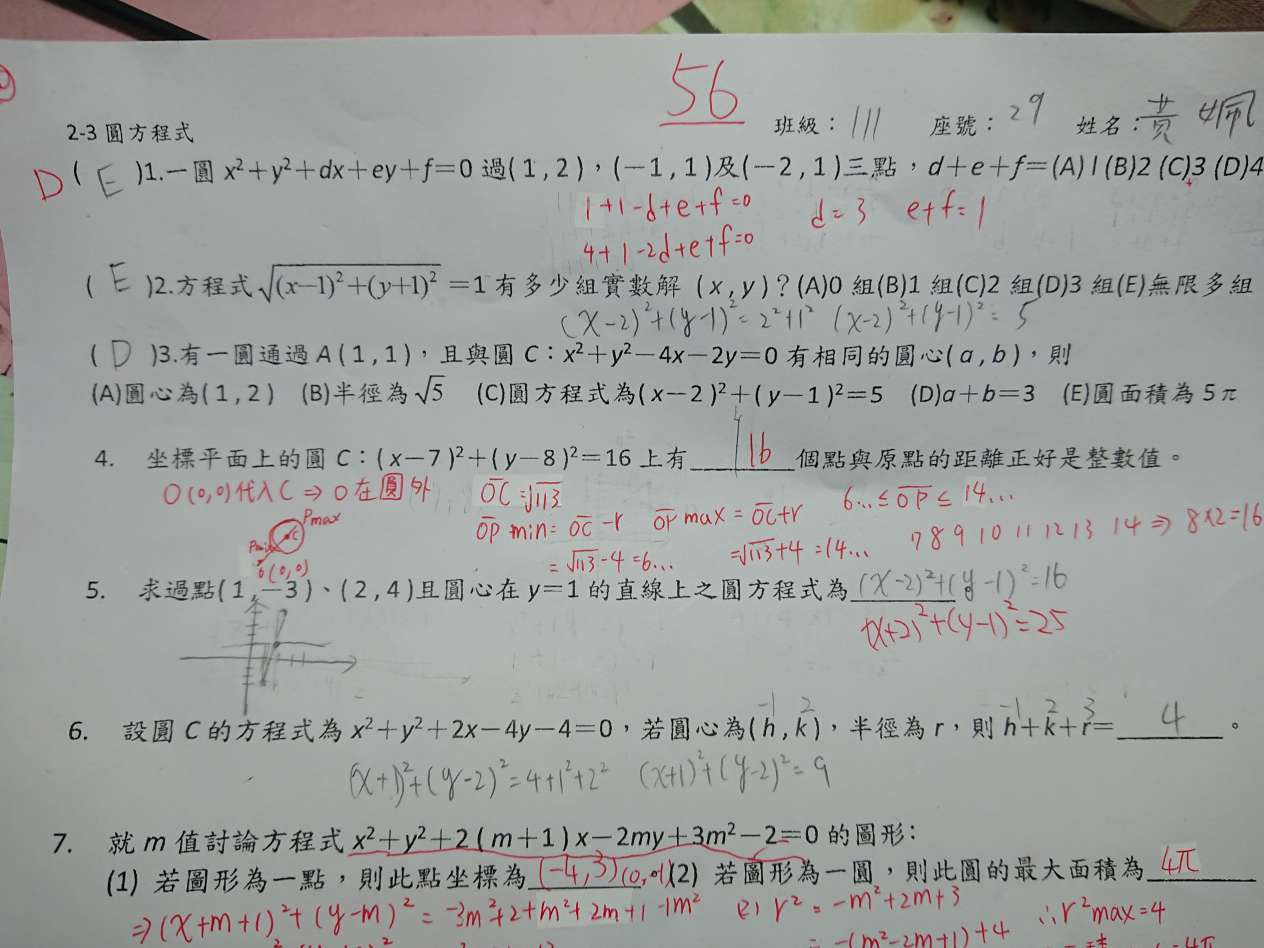 56
2-3 圓方程式 班級：111 座號：29 姓名：黃
D ( E )1.一圓 x²+y²+dx+ey+f=0 過(1,2)，(-1,1)及(-2,1)三點，d+e+f=(A)1(B)2 (C)3 (D)4
1+1-d+e+f=0 d=3 e+f=1
4+1-2d+e+f=0
( E )2.方程式√((x-1)²+(y+1)²) =1 有多少組實數解 (x,y)？(A)0 組(B)1 組(C)2 組(D)3 組(E)無限多組
(x-2)²+(y-1)²=2²+1² (x-2)²+(y-1)²=5
( D )3.有一圓通過 A(1,1)，且與圓 C：x²+y²-4x-2y=0 有相同的圓心(a,b)，則
(A)圓心為(1,2) (B)半徑為√5 (C)圓方程式為(x-2)²+(y-1)²=5 (D)a+b=3 (E)圓面積為 5π
4. 坐標平面上的圓 C：(x-7)²+(y-8)²=16 上有 16 個點與原點的距離正好是整數值。
O(0,0)代入C ⇒ O在圓外 OC=√113 6...≤OP≤14...
Pmax
C
Pmin
O(0,0)
OP min=OC-r OP max=OC+r 7 8 9 10 11 12 13 14 ⇒ 8×2=16
=√113-4=6... =√113+4=14...
5. 求過點(1,-3)、(2,4)且圓心在 y=1 的直線上之圓方程式為(x-2)²+(y-1)²=16
(x+2)²+(y-1)²=25
-1 2 -1 2 3
6. 設圓 C 的方程式為 x²+y²+2x-4y-4=0，若圓心為(h,k)，半徑為 r，則 h+k+r= 4 。
(x+1)²+(y-2)²=4+1²+2² (x+1)²+(y-2)²=9
7. 就 m 值討論方程式 x²+y²+2(m+1)x-2my+3m²-2=0 的圖形：
(1) 若圖形為一點，則此點坐標為(-4,3)(0,-1)(2) 若圖形為一圓，則此圓的最大面積為 4π
⇒(x+m+1)²+(y-m)²=-3m²+2+m²+2m+1+m² (2) r²=-m²+2m+3 ∴r²max=4
=-(m²-2m+1)+4